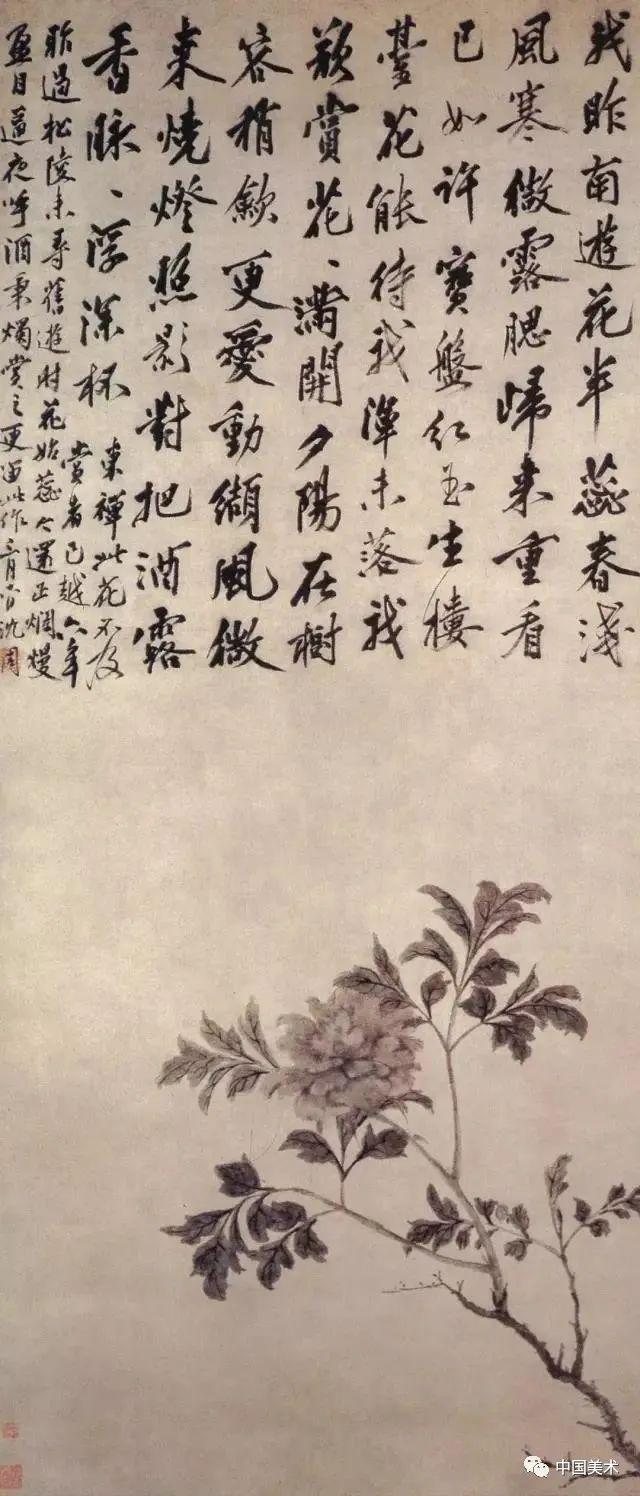 我昨南遊花半蕊春淺
風寒微露腮歸來重看
已如許寶盤紅玉生樓
臺花能待我渾未落我
欲賞花、滿開夕陽在樹
容稍歛更愛動纈風微
來燒燈照影對把酒露
香脉、浮深杯
東禪此花不及
賞者已越六年
昨過松陵未尋舊遊時花始蕊今還正爛熳
盈目逼夜呼酒秉燭賞之更此作沈周
中国美术